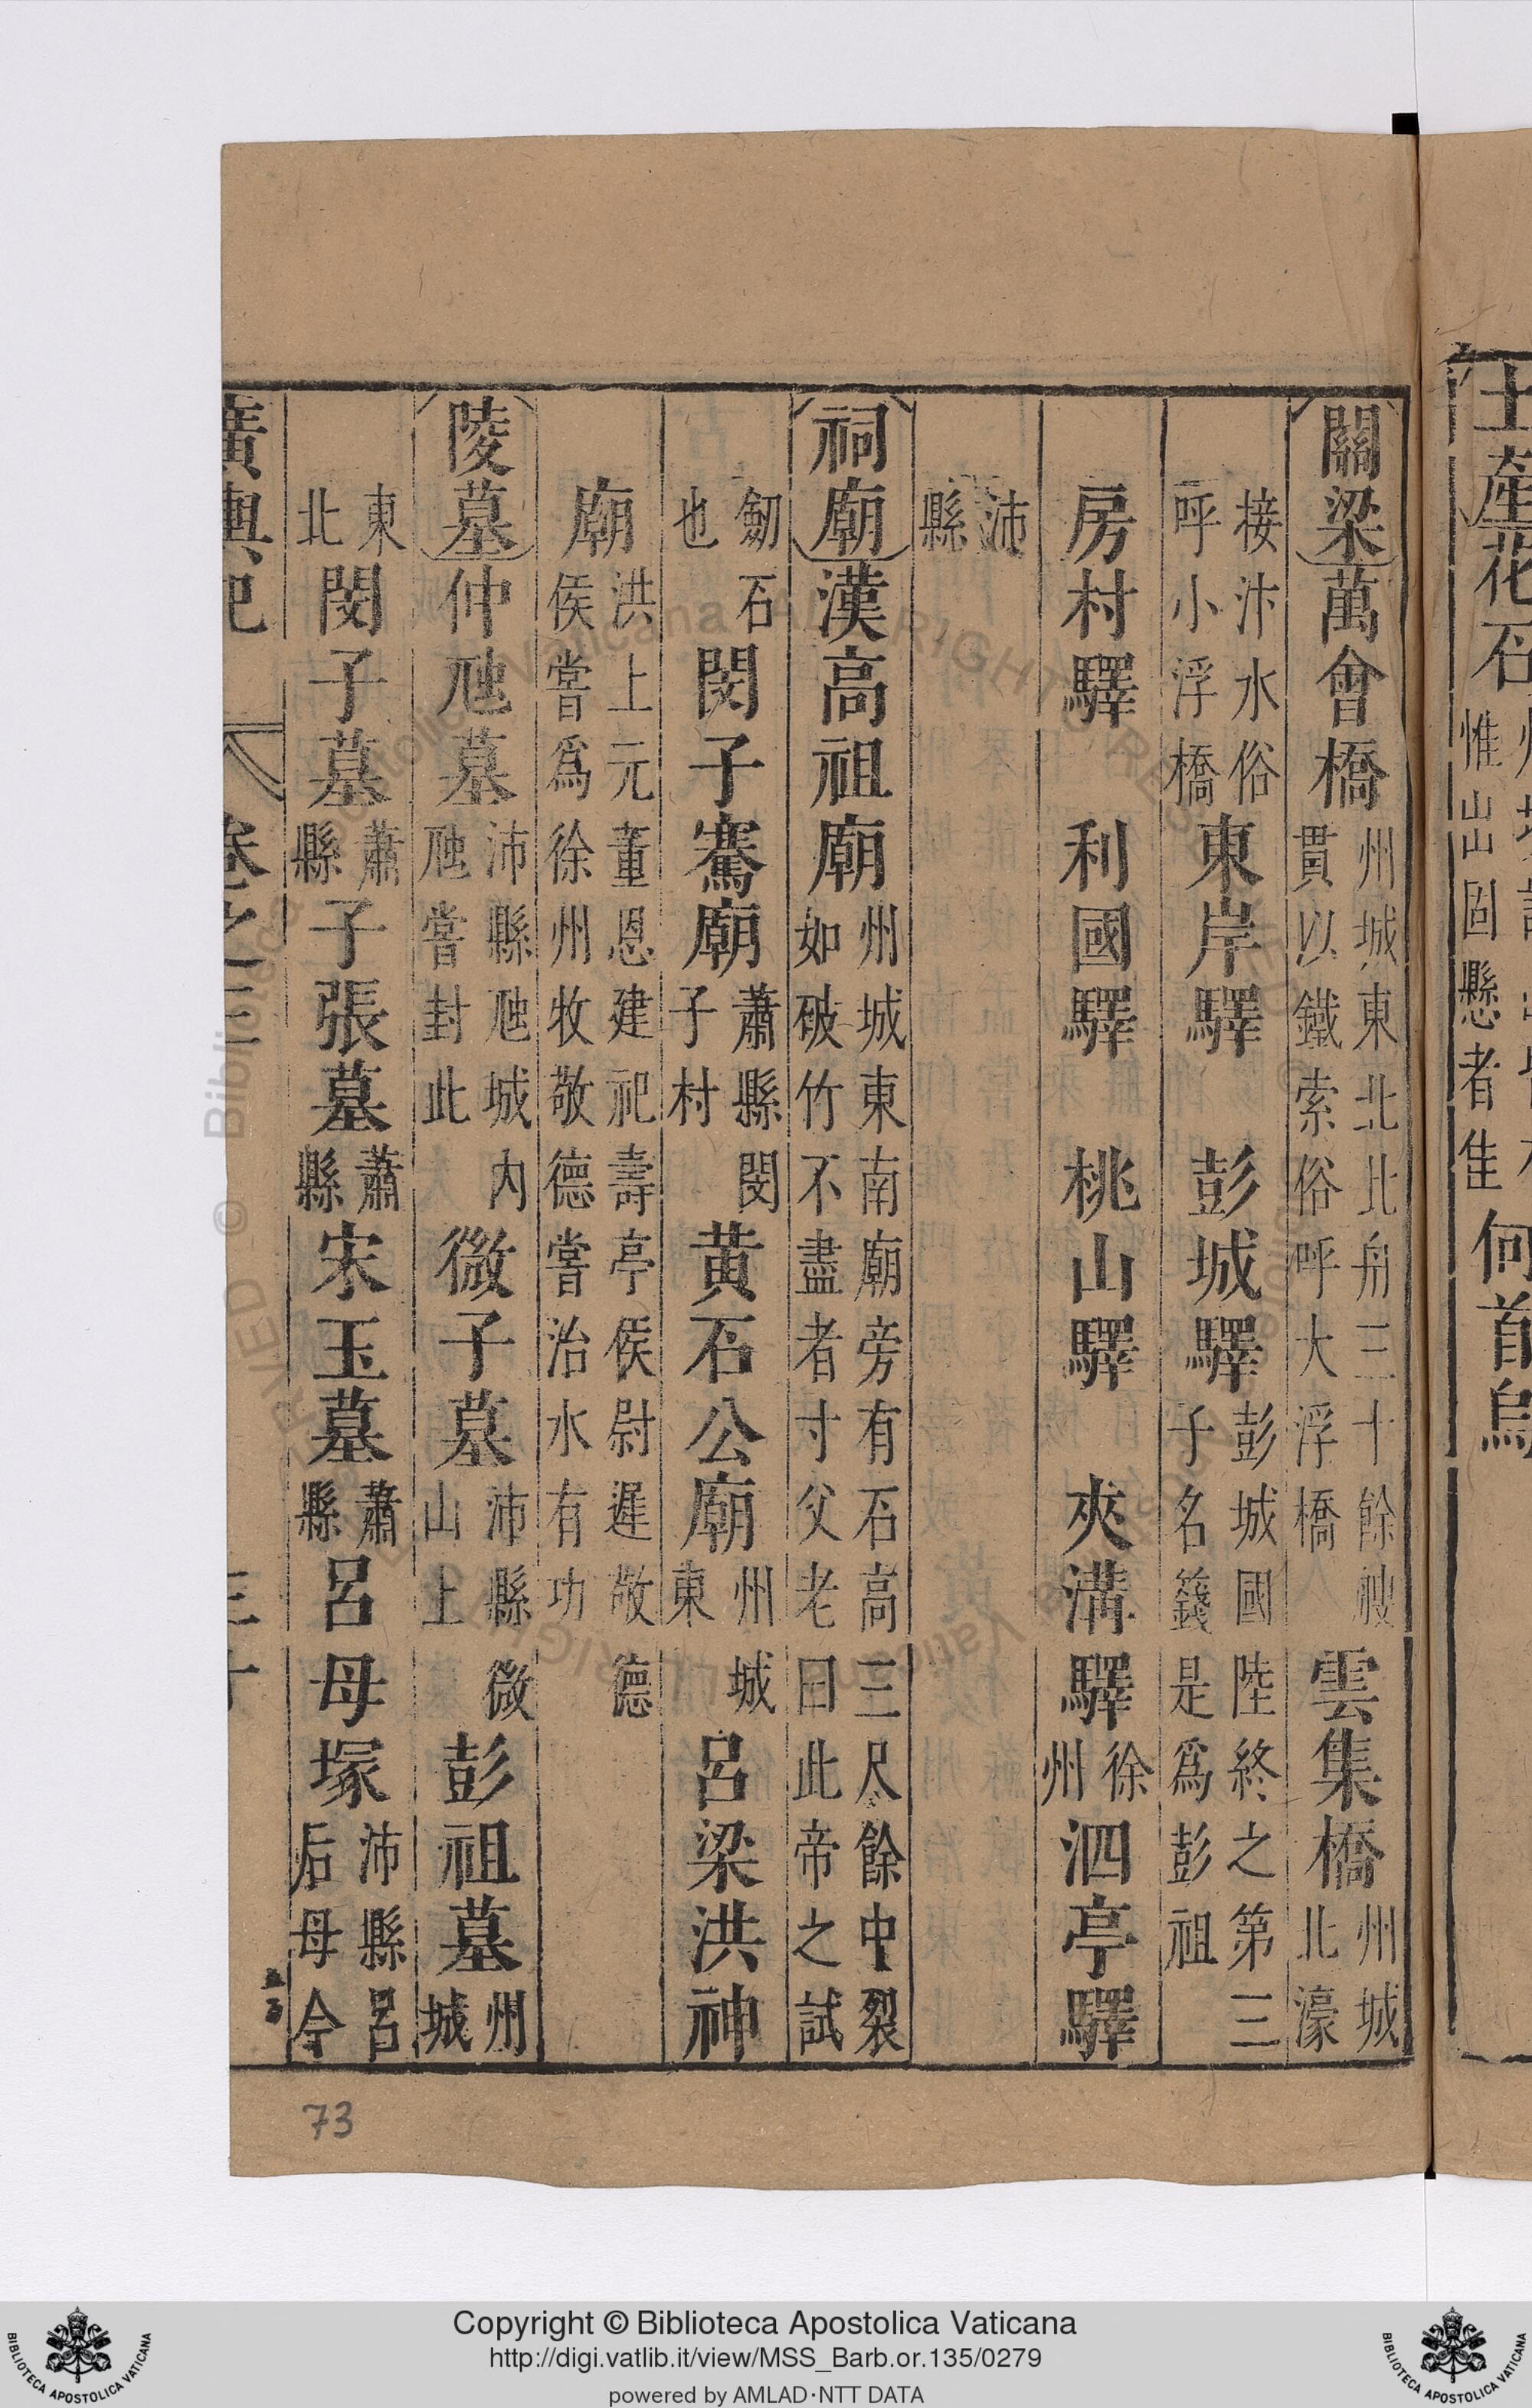 土產花石
惟出固懸者隹
何首烏
關梁萬會橋州城東北比舟三十餘艘
貫以鐵索俗呼大浮橋
雲集橋州城
北濠
接汴水俗
呼小浮橋
東岸驛 彭城驛彭城國陸終之第三
子名籛是爲彭祖
房村驛 利國驛 桃山驛 夾溝驛徐
州
泗亭驛
沛
縣
祠廟漢高祖廟州城東南廟旁有石高三尺餘中裂
如破竹不盡者寸父老曰此帝之試
劒石
也
閔子騫廟蕭縣閔
子村
黃石公廟州城
東
呂梁洪神
廟洪上元董恩建祀壽亭侯尉遲敬德
侯嘗爲徐州牧敬德嘗治水有功
陵墓仲虺墓沛縣虺城內
虺嘗封此
微子墓沛縣微
山上
彭祖墓州
城
東
北
閔子墓蕭
縣
子張墓蕭
縣
宋玉墓蕭
縣
呂母塚沛縣呂
后母今
廣輿記 卷之三
73
Copyright © Biblioteca Apostolica Vaticana
http://digi.vatlib.it/view/MSS_Barb.or.135/0279
powered by AMLAD·NTT DATA
BIBLIOTECA APOSTOLICA VATICANA
BIBLIOTECA APOSTOLICA VATICANA